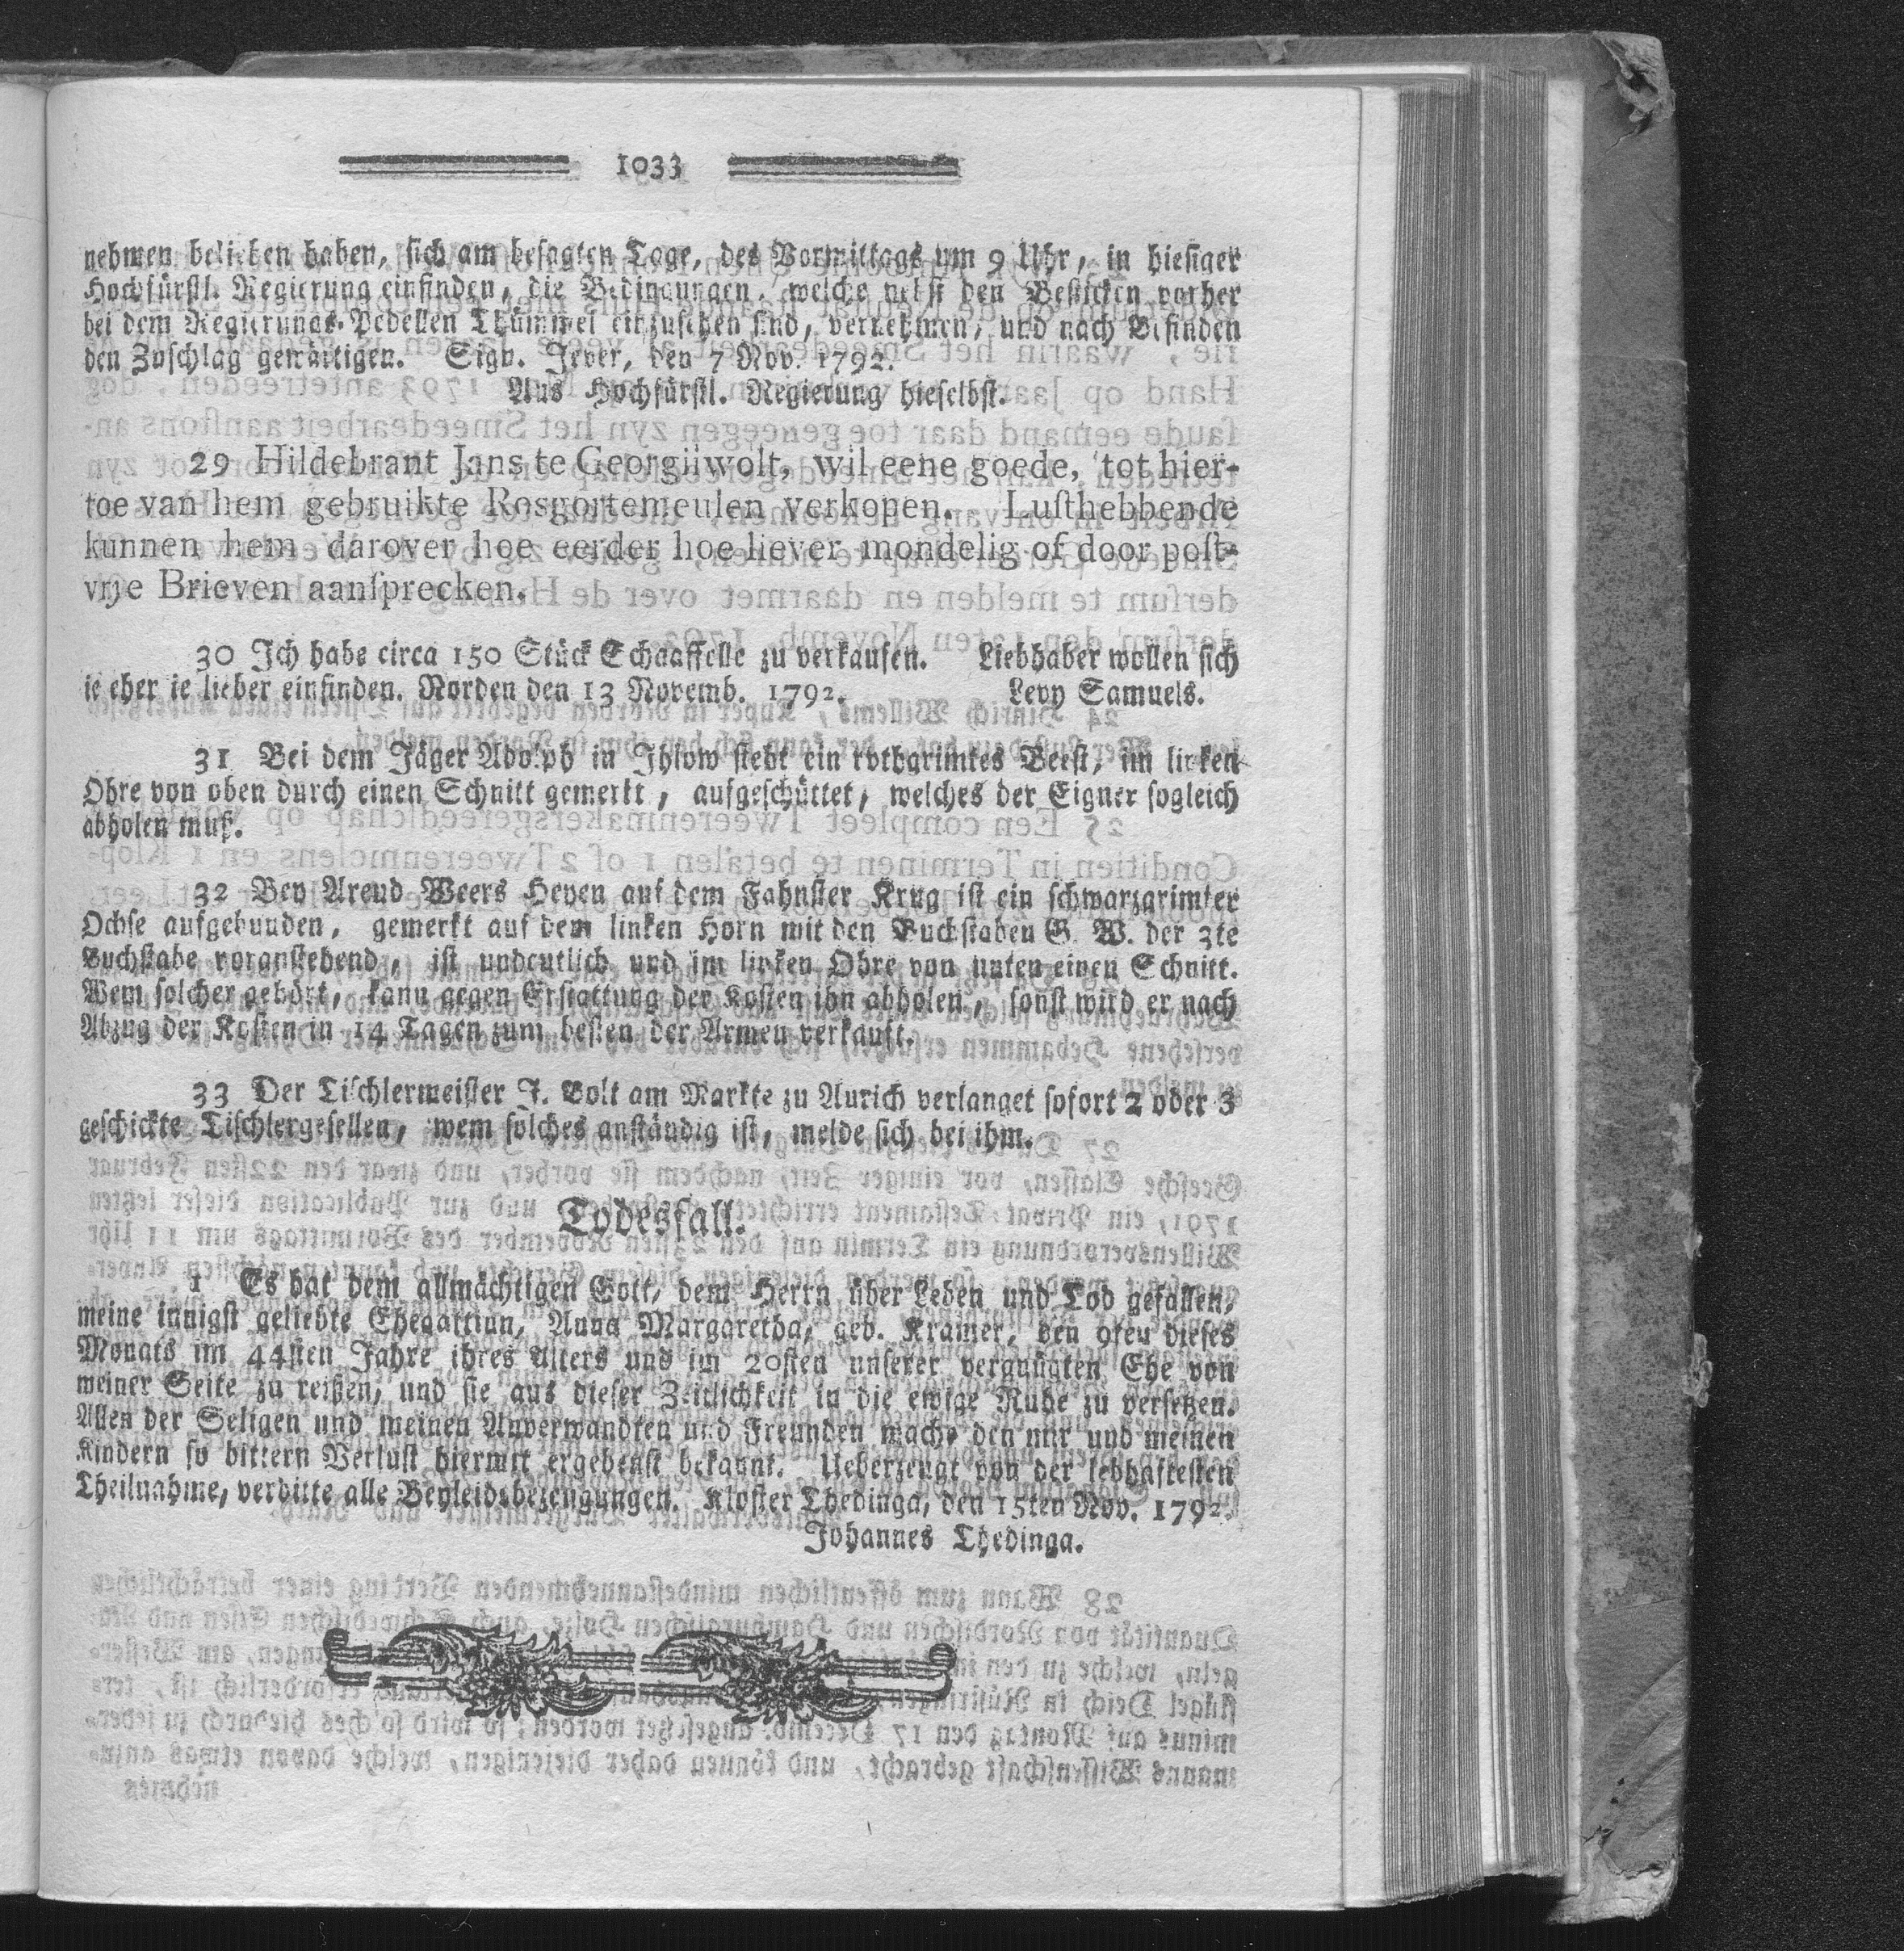 1033
nehmen belieben haben, sich am besagten Tage, des Vormittags um 9 Uhr, in hiesiger
Hochfürstl. Regierung einfinden, die Bedingungen, welche nebst den Bestecken vorher
bei dem Regierungs-Pedellen Thümmel einzusehen sind, vernehmen, und nach Befinden
den Zuschlag gewärtigen. Sign. Jever, den 7 Nov. 1792.
Aus Hochfürstl. Regierung hieselbst.
29 Hildebrant Jans te Georgiiwolt, wil eene goede, tot hier-
toe van hem gebruikte Rosgortemeulen verkopen. Luſthebbende
kunnen hem darover hoe eerder hoe liever mondelig of door poſt-
vrye Brieven aanſprecken.
30 Ich habe circa 150 Stück Schaaffelle zu verkaufen. Liebhaber wollen sich
ie eher ie lieber einfinden. Norden den 13 Novemb. 1792. Levy Samuels.
31 Bei dem Jäger Adolph in Ihlow steht ein rothgrimtes Beest, im linken
Ohre von oben durch einen Schnitt gemerkt, aufgeschüttet, welches der Eigner sogleich
abholen muß.
32 Bey Arend Weers Heyen auf dem Fahnster Krug ist ein schwarzgrimter
Ochse aufgebunden, gemerkt auf dem linken Horn mit den Buchstaben G. W. der 3te
Buchstabe voranstehend, ist undeutlich und im linken Ohre von unten einen Schnitt.
Wem solcher gehört, kann gegen Erstattung der Kosten ihn abholen, sonst wird er nach
Abzug der Kosten in 14 Tagen zum besten der Armen verkauft.
33 Der Tischlermeister J. Bolt am Markte zu Aurich verlanget sofort 2 oder 3
geschickte Tischlergesellen, wem solches anständig ist, melde sich bei ihm.
Todesfall.
1 Es hat dem allmächtigen Gott, dem Herrn über Leben und Tod gefallen,
meine innigst geliebte Ehegattinn, Anna Margaretha, geb. Kramer, den 9ten dieses
Monats im 44sten Jahre ihres Alters und im 20sten unserer vergnügten Ehe von
meiner Seite zu reißen, und sie aus dieser Zeitlichkeit in die ewige Ruhe zu versetzen.
Allen der Seligen und meinen Anverwandten und Freunden mache den mir und meinen
Kindern so bittern Verlust hiermit ergebenst bekannt. Ueberzeugt von der lebhaftesten
Theilnahme, verbitte alle Beyleidsbezeugungen. Kloster Thedinga, den 15ten Nov. 1792.
Johannes Thedinga.